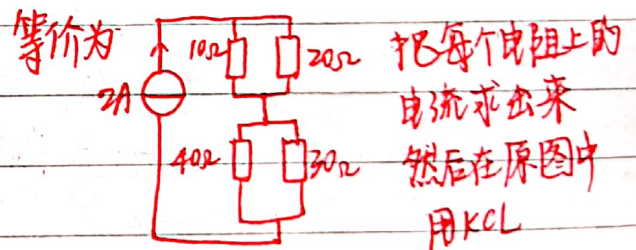 等价为
10Ω
20Ω
2A
40Ω
30Ω
把每个电阻上的
电流求出来
然后在原图中
用KCL